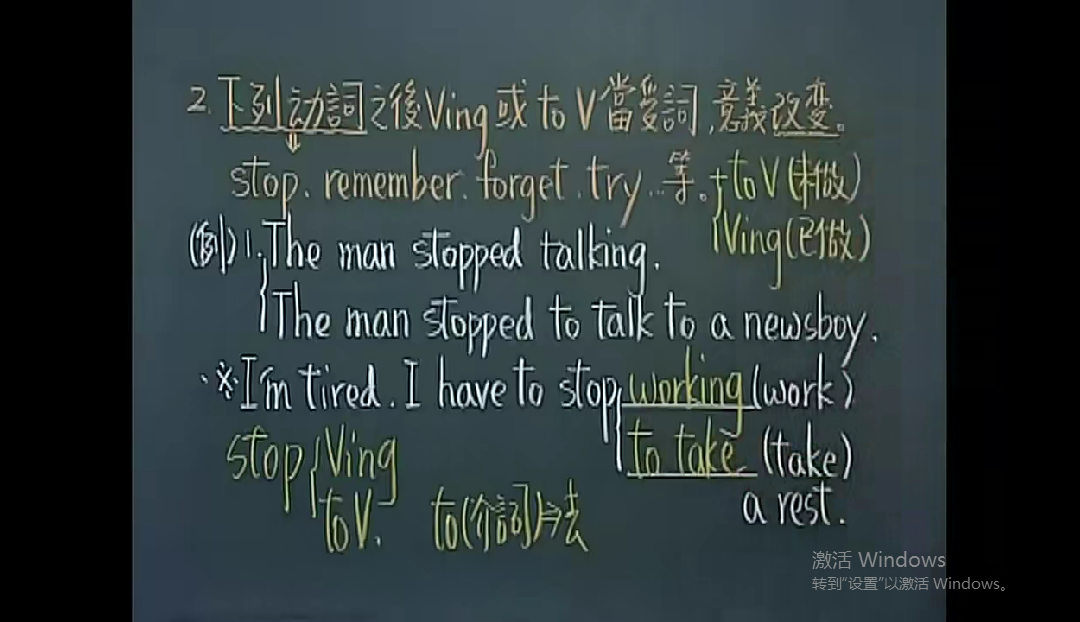 2. 下列动詞之後Ving或 to V當受詞,意義改变。
stop. remember. forget. try…等。 to V(未做)
Ving(已做)
(例) 1. The man stopped talking.
The man stopped to talk to a newsboy.
※ I'm tired. I have to stop working (work)
to take (take)
a rest.
stop Ving
to V. to(介詞)⇒去
激活 Windows
转到“设置”以激活 Windows。